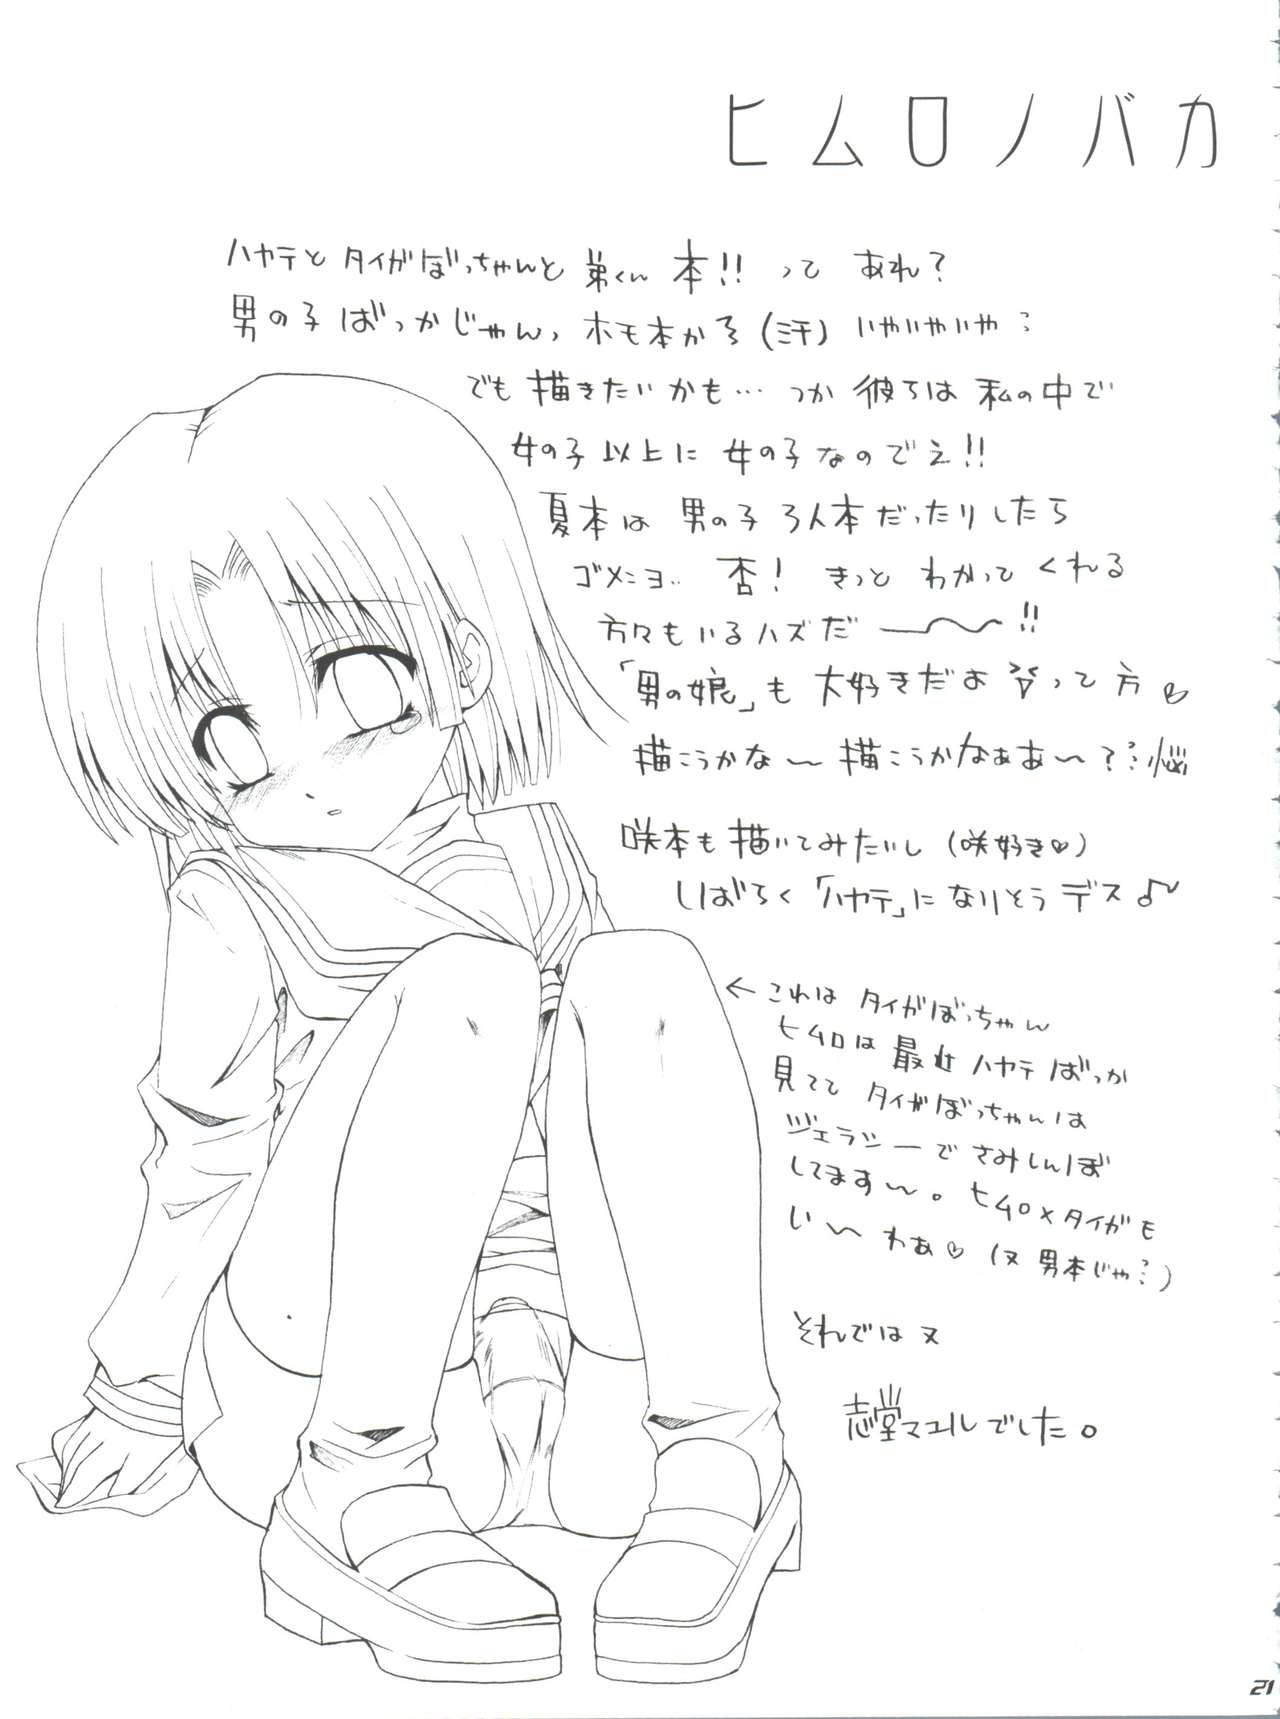 ヒムロノバカ
ハヤテとタイガぼっちゃんと弟くん本!! って あれ?
男の子ばっかじゃんっ ホモ本かろ(汗) いやいやいや
でも描きたいかも… つか彼らは私の中で
女の子以上に女の子なのでえ!!
夏本は男の子3人本だったりしたら
ゴメンヨ… 否! きっとわかってくれる
方々もいるハズだ〜〜!!
「男の娘」も大好きだよって方♡
描こうかな〜描こうかなぁあ〜??悩
咲本も描いてみたいし(咲好き♡)
しばらく「ハヤテ」になりそうデス♪
←これはタイガぼっちゃん
ヒムロは最近ハヤテばっか
見ててタイガぼっちゃんは
ジェラシーでさみしんぼ
してます〜。ヒムロ×タイガも
い〜わぁ♡(又男本じゃ…)
それでは又
志堂マユルでした。
21